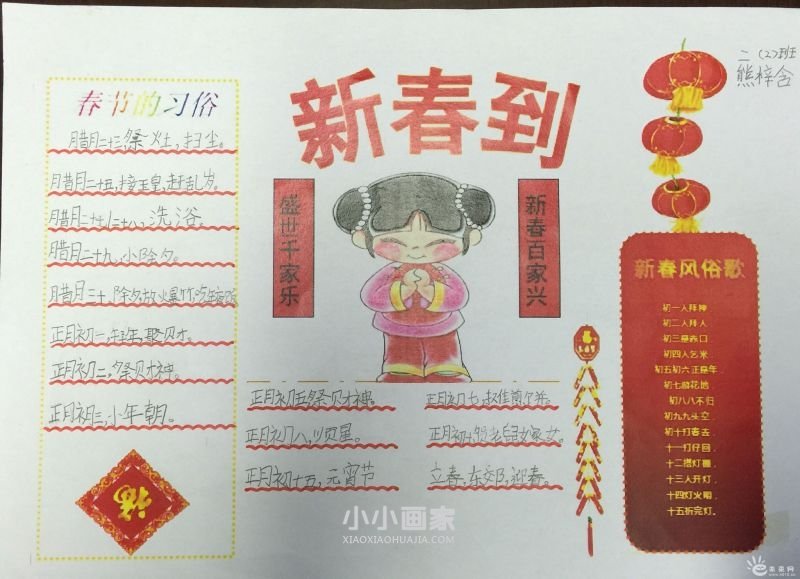 二（2）班
熊梓含
新春到
春节的习俗
腊月二十三,祭灶,扫尘。
腊月二十五,接玉皇,赶乱岁。
腊月二十七/二十八,洗浴。
腊月二十九,小除夕。
腊月三十,除夕,放爆竹
正月初一,年,聚财。
正月初二,祭财神。
正月初三,小年朝。
福
盛世千家乐
新春百家兴
正月初五,祭财神。
正月初七,
正月初八,顺星。
正月初十,
正月十五,元宵节
立春,东郊,迎春。
新春风俗歌
初一人拜神
初二人拜人
初三是赤口
初四人乞米
初五初六正是年
初七
初八八不归
初九九头空
初十打春去
十一打仔回
十二搭灯棚
十三人开灯
十四灯火明
十五祈完灯
小小画家
XIAOXIAOHUAJIA.COM